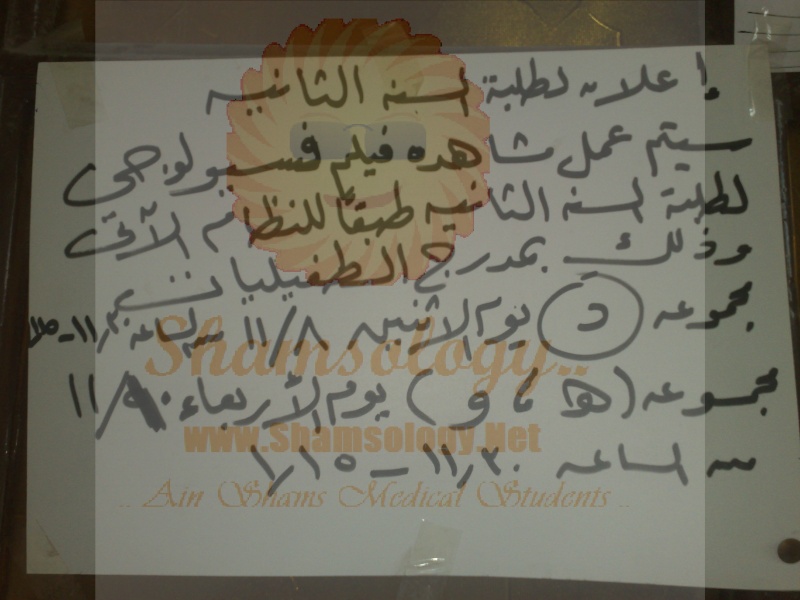 إعلان لطلبة السنه الثانيه
سيتم عمل مشاهده فيلم فسيولوجى
لطلبة السنه الثانيه طبقاً للنظام الآتى
وذلك بمدرج الطفيليات
مجموعه (د) يوم الاثنين ١١/٨ من الساعه ١١,٣٠ - ١,١٥
مجموعه (ه، و) يوم الأربعاء ١١/١٠
من الساعه ١١,٣٠ - ١,١٥
Shamsology..
www.Shamsology.Net
.. Ain Shams Medical Students ..